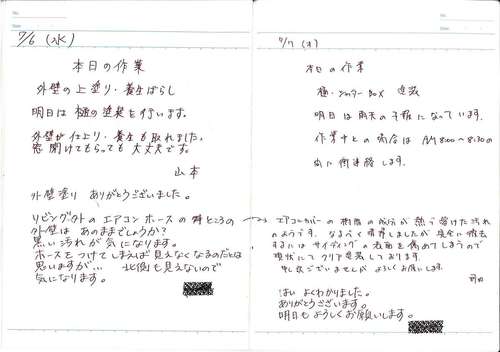 No.
Date
7/6 (水)
本日の作業
外壁の上塗り・養生ばらし
明日は樋の塗装を行います。
外壁が仕上り・養生も取れました。
窓開けてもらっても大丈夫です。
山本
外壁塗り ありがとうございました。
リビング外のエアコンホースの
外壁は あのままでしょうか?
黒い汚れが気になります。
ホースをつけてしまえば見えなくなるのだとは
思いますが… 北側も見えないので
気になります。
No.
Date
7/7 (木)
本日の作業
樋・シャッターBOX 塗装
明日は雨天の予報になっています。
作業中止の場合は AM 8:00〜8:30の
間に御連絡します。
→ エアコンカバーの樹脂の成分が熱で溶けた汚れ
のようです。なるべく清掃しましたが完全に撤去
するにはサイディングの表面を傷めてしまうので
現状にて塗装しております。
申し訳ございませんがよろしくお願いします。
はい よくわかりました。
ありがとうございます。
明日もよろしくお願いします。